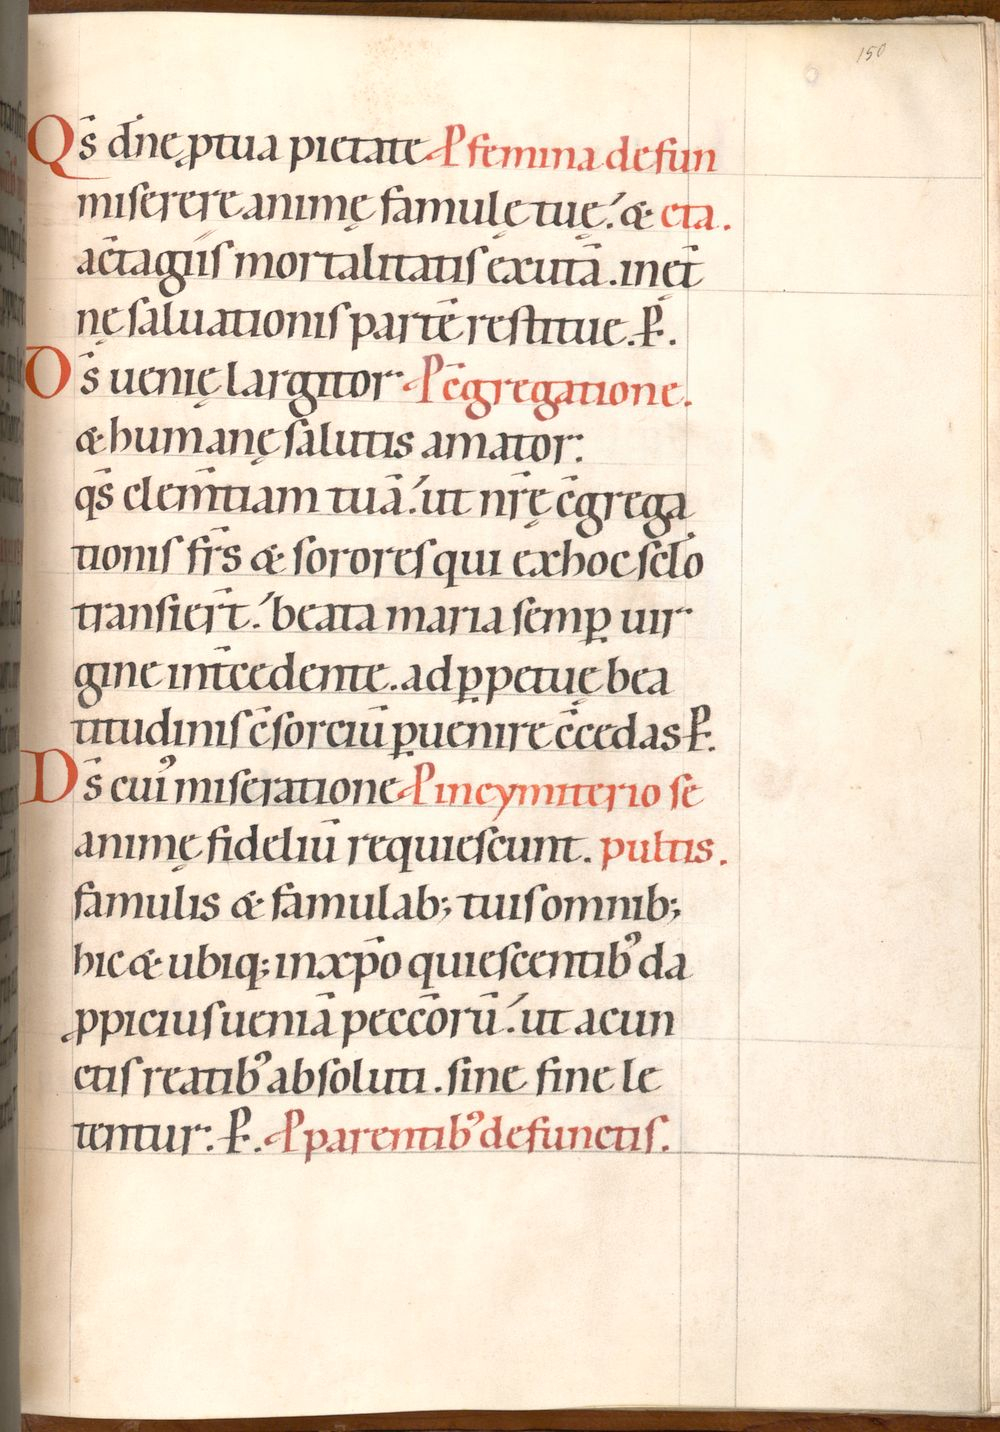 150
Qs̄ dn̄e ꝓ tua pietate Ꝓ femina defun
miserere animę famulę tuę. & cta.
ac̄tagiis mortalitatis exutā. in ęt̄
nę saluationis partē restitue. P.
Ds̄ uenię largitor Ꝓ c̄gregatione.
& humanę salutis amator:
qs̄ clem̄tiam tuā. ut nr̄ę c̄grega
tionis fr̄s & sorores qui ex hoc sclo
transier̄t. beata maria semꝑ uir
gine int̄cedente. ad ꝑpetuę bea
titudinis c̄sorciū ꝑuenire c̄cedas P.
Ds̄ cui᾽ miseratione Ꝓ in cymiterio se
animę fideliū requiescunt. pultis.
famulis & famulab; tuis omnib;
hic & ubiq; in xp̄o quiescentib᾽ da
ꝓpicius ueniā pecc̄orū. ut a cun
ctis reatib᾽ absoluti. sine fine le
tentur: P. Ꝓ parentib᾽ defunctis.